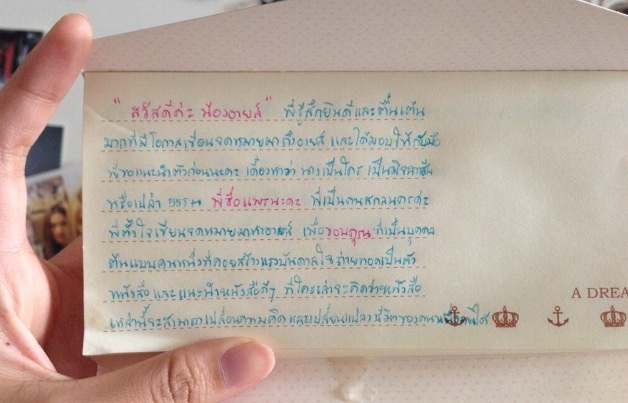 "สวัสดีค่ะ น้องอายส์" พี่รู้สึกยินดีและตื่นเต้น
มากที่มีโอกาสเขียนจดหมายมาถึงอายส์ และได้มอบให้กับมือ
พี่ขอแนะนำตัวก่อนนะคะ เดี๋ยวหาว่า นางเป็นใคร เป็นมิจฉาชีพ
หรือเปล่า 555+ พี่ชื่อแพรนะคะ พี่เป็นคนสกลนครค่ะ
พี่ตั้งใจเขียนจดหมายมาหาอายส์ เพื่อขอบคุณที่เป็นบุคคล
ต้นแบบคนหนึ่งที่คอยสร้างแรงบันดาลใจ ถ่ายทอดเป็นตัว
หนังสือ และแนะนำหนังสือดีๆ ที่ใครเล่าจะคิดว่าหนังสือ
เหล่านี้จะสามารถเปลี่ยนความคิด และเปลี่ยนแปลงชีวิตของคนหนึ่งคนได้
A DREA